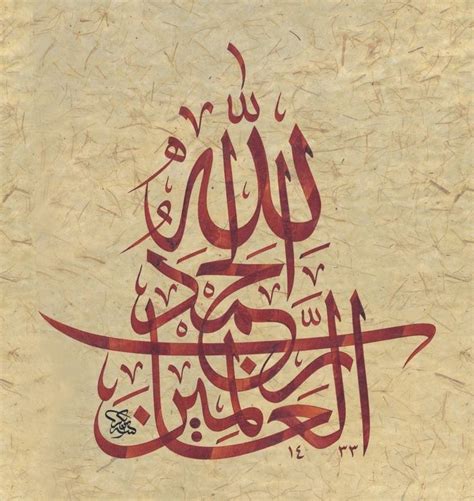 الحمد لله
رب العالمين
١٤٣٣